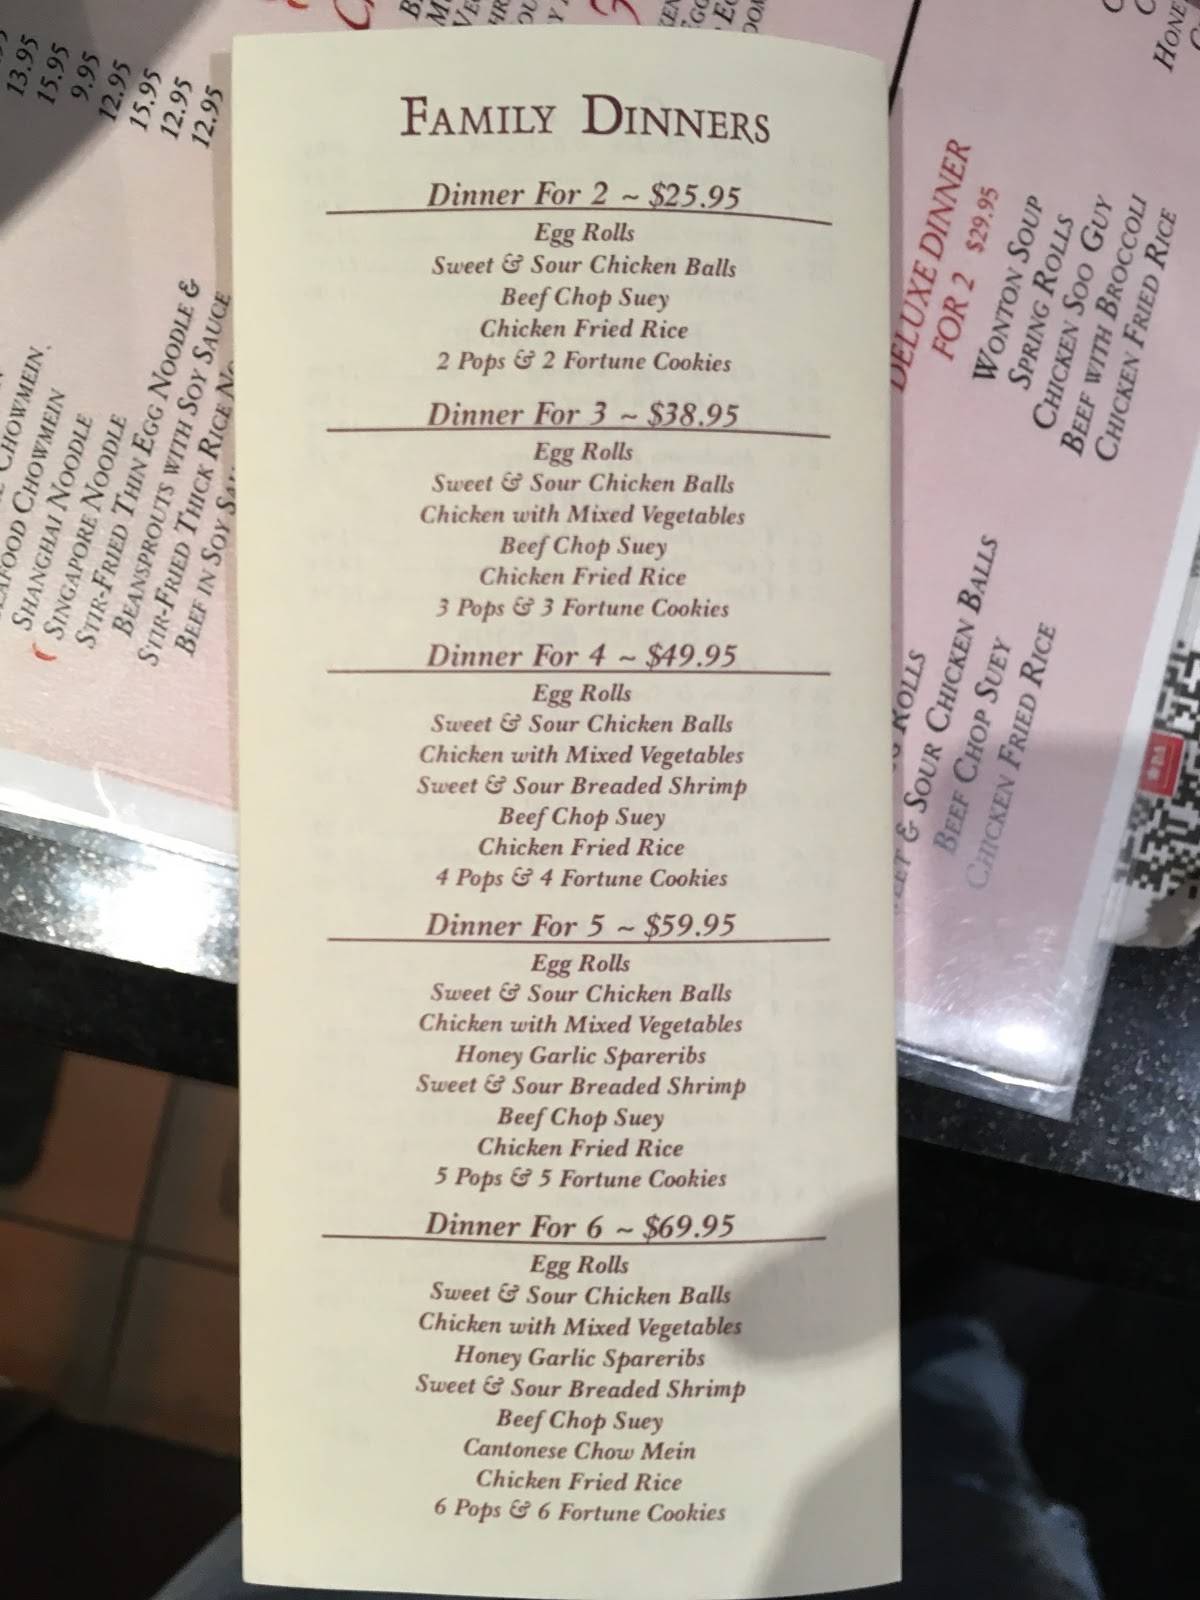 FAMILY DINNERS
Dinner For 2 ~ $25.95
Egg Rolls
Sweet & Sour Chicken Balls
Beef Chop Suey
Chicken Fried Rice
2 Pops & 2 Fortune Cookies
Dinner For 3 ~ $38.95
Egg Rolls
Sweet & Sour Chicken Balls
Chicken with Mixed Vegetables
Beef Chop Suey
Chicken Fried Rice
3 Pops & 3 Fortune Cookies
Dinner For 4 ~ $49.95
Egg Rolls
Sweet & Sour Chicken Balls
Chicken with Mixed Vegetables
Sweet & Sour Breaded Shrimp
Beef Chop Suey
Chicken Fried Rice
4 Pops & 4 Fortune Cookies
Dinner For 5 ~ $59.95
Egg Rolls
Sweet & Sour Chicken Balls
Chicken with Mixed Vegetables
Honey Garlic Spareribs
Sweet & Sour Breaded Shrimp
Beef Chop Suey
Chicken Fried Rice
5 Pops & 5 Fortune Cookies
Dinner For 6 ~ $69.95
Egg Rolls
Sweet & Sour Chicken Balls
Chicken with Mixed Vegetables
Honey Garlic Spareribs
Sweet & Sour Breaded Shrimp
Beef Chop Suey
Cantonese Chow Mein
Chicken Fried Rice
6 Pops & 6 Fortune Cookies
13.95
15.95
9.95
12.95
15.95
12.95
12.95
CHOWMEIN
CHOWMEIN
SHANGHAI NOODLE
SINGAPORE NOODLE
STIR-FRIED THIN EGG NOODLE &
BEANSPROUTS WITH SOY SAUCE
STIR-FRIED THICK RICE
BEEF IN SOY
DELUXE DINNER
FOR 2 $29.95
WONTON SOUP
SPRING ROLLS
CHICKEN SOO GUY
BEEF WITH BROCCOLI
CHICKEN FRIED RICE
ROLLS
& SOUR CHICKEN BALLS
BEEF CHOP SUEY
CHICKEN FRIED RICE